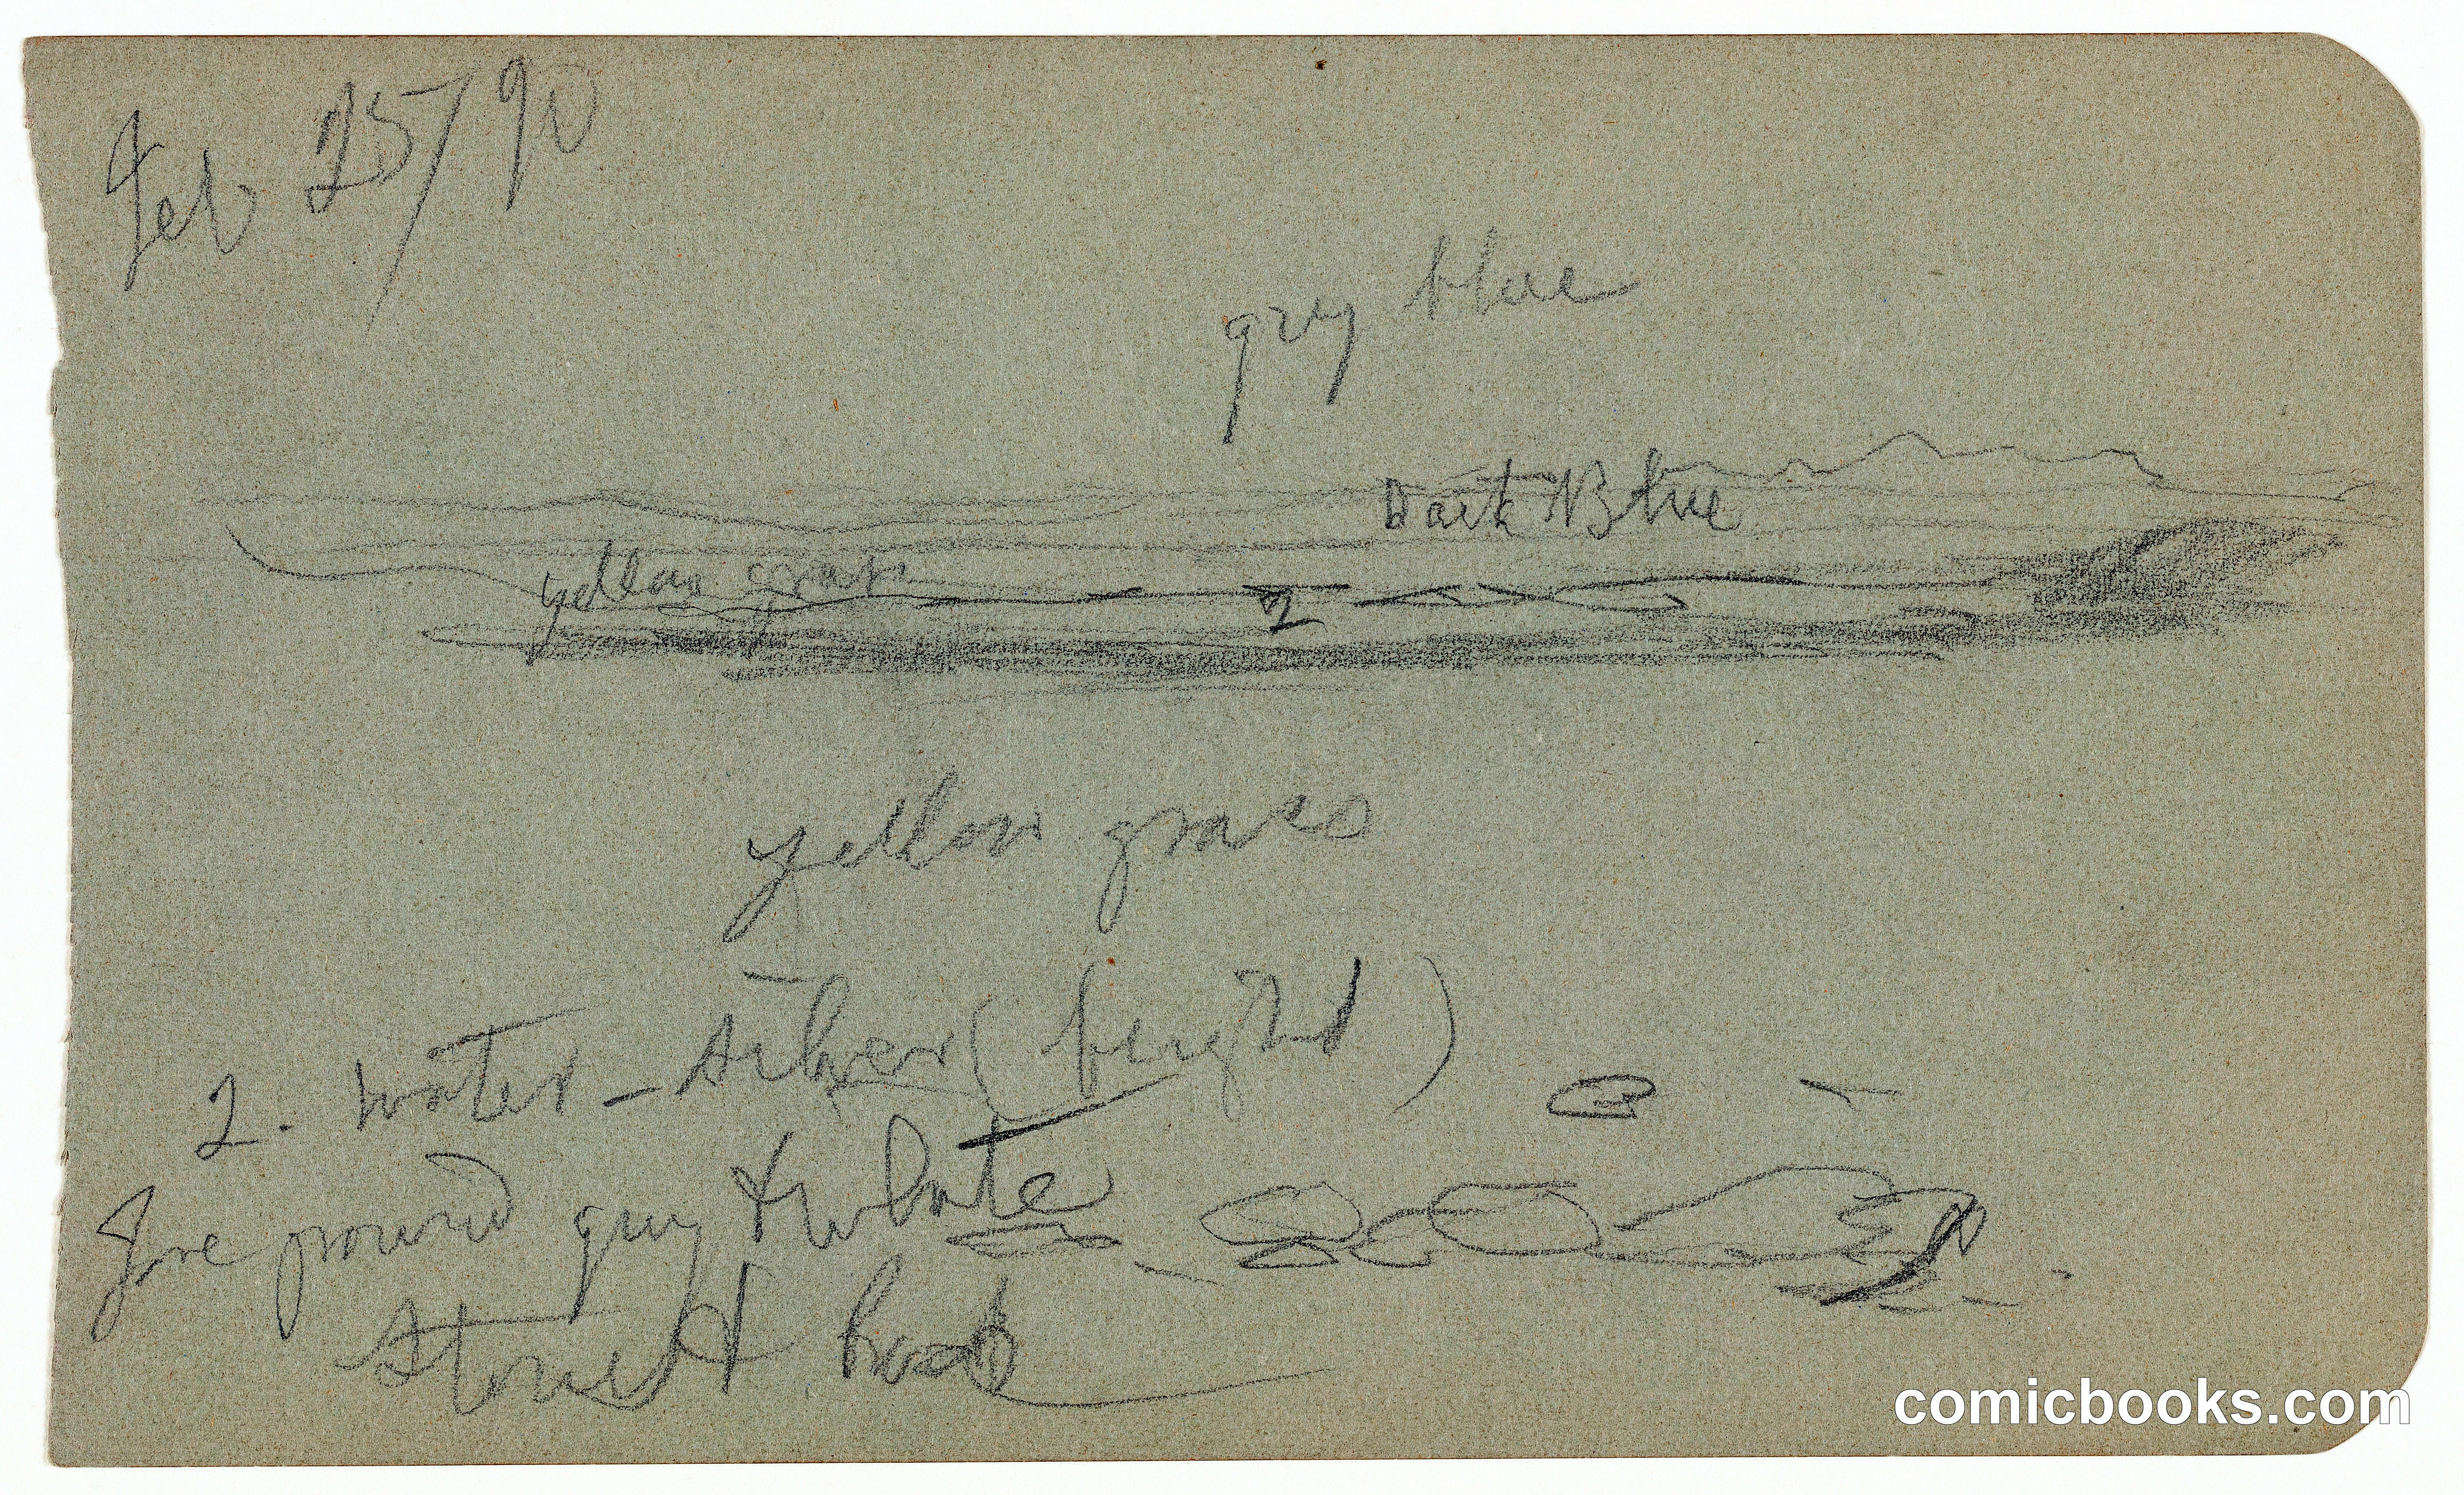 Feb 25/90
grey blue
Dark Blue
yellow grass
2
yellow grass
2. water - silver (bright)
Fore ground grey & white
stones &
comicbooks.com